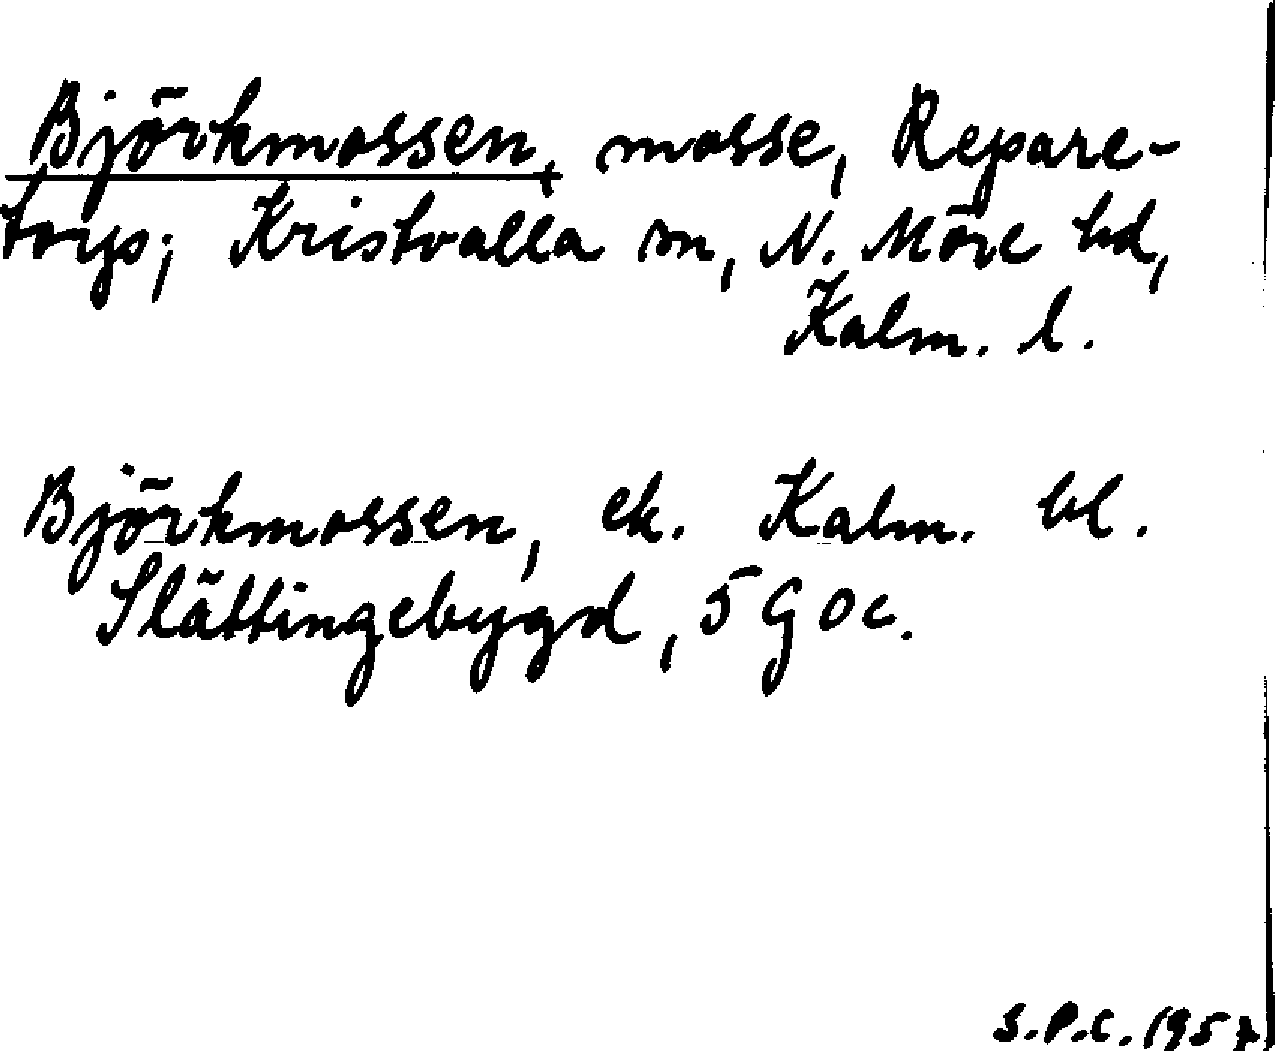 Björkmossen, mosse, Repare-
torp; Kristvalla sn, N. Möre hd,
Kalm. l.
Björkmossen, ek. Kalm. bl.
Slättingebygd, 5 G 0 c.
S.P.C. 1957